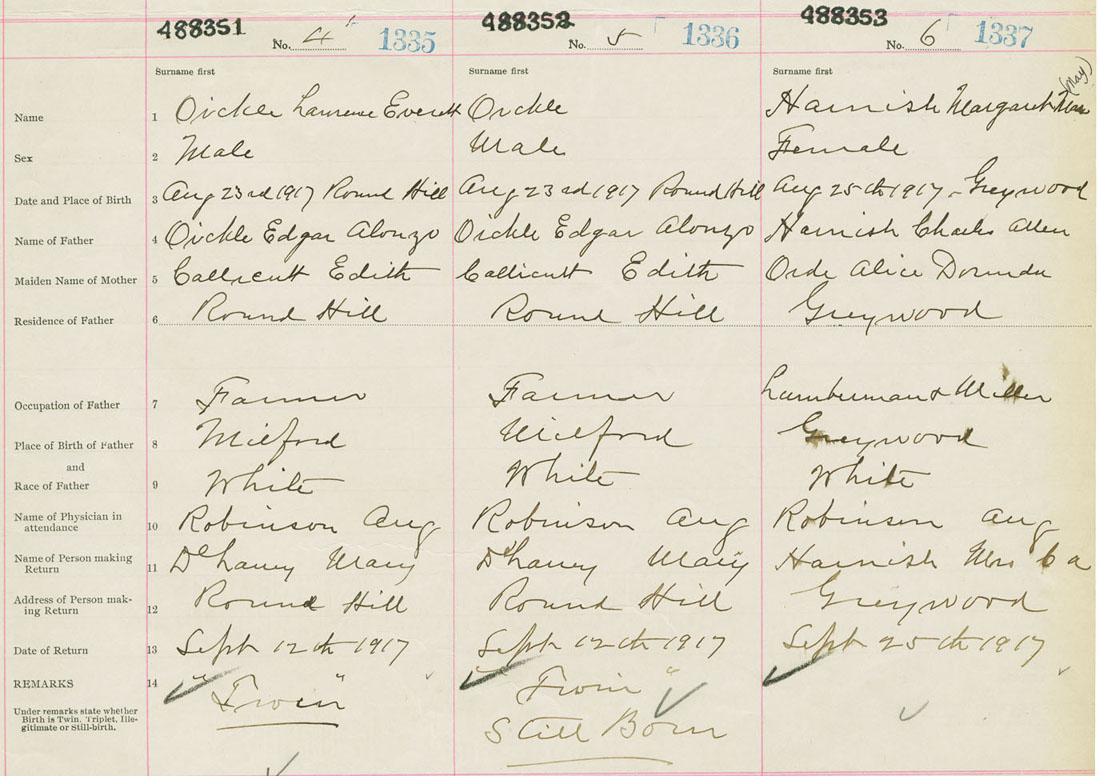 488351 488352 488353
No. 4 1335 No. 5 1336 No. 6 1337
Surname first Surname first Surname first
(May)
Name 1 Oickle Laurense Everett Oickle Harnish Margaret
Sex 2 Male Male Female
Date and Place of Birth 3 Aug 23rd 1917 Round Hill Aug 23rd 1917 Round Hill Aug 25th 1917 - Greywood
Name of Father 4 Oickle Edgar Alonzo Oickle Edgar Alonzo Harnish Charles Allen
Maiden Name of Mother 5 Callicutt Edith Callicutt Edith Orde Alice Dorinda
Residence of Father 6 Round Hill Round Hill Greywood
Occupation of Father 7 Farmer Farmer Lumberman & Miller
Place of Birth of Father 8 Milford Milford Greywood
and
Race of Father 9 White White White
Name of Physician in
attendance 10 Robinson Aug Robinson Aug Robinson Aug
Name of Person making
Return 11 Dehaney Mary Dehaney Mary Harnish Mrs C a
Address of Person mak-
ing Return 12 Round Hill Round Hill Greywood
Date of Return 13 Sept 12th 1917 Sept 12th 1917 Sept 25th 1917
REMARKS 14 "Twin" Twin"
Under remarks state whether
Birth is Twin, Triplet, Ille-
gitimate or Still-birth.
Still Born